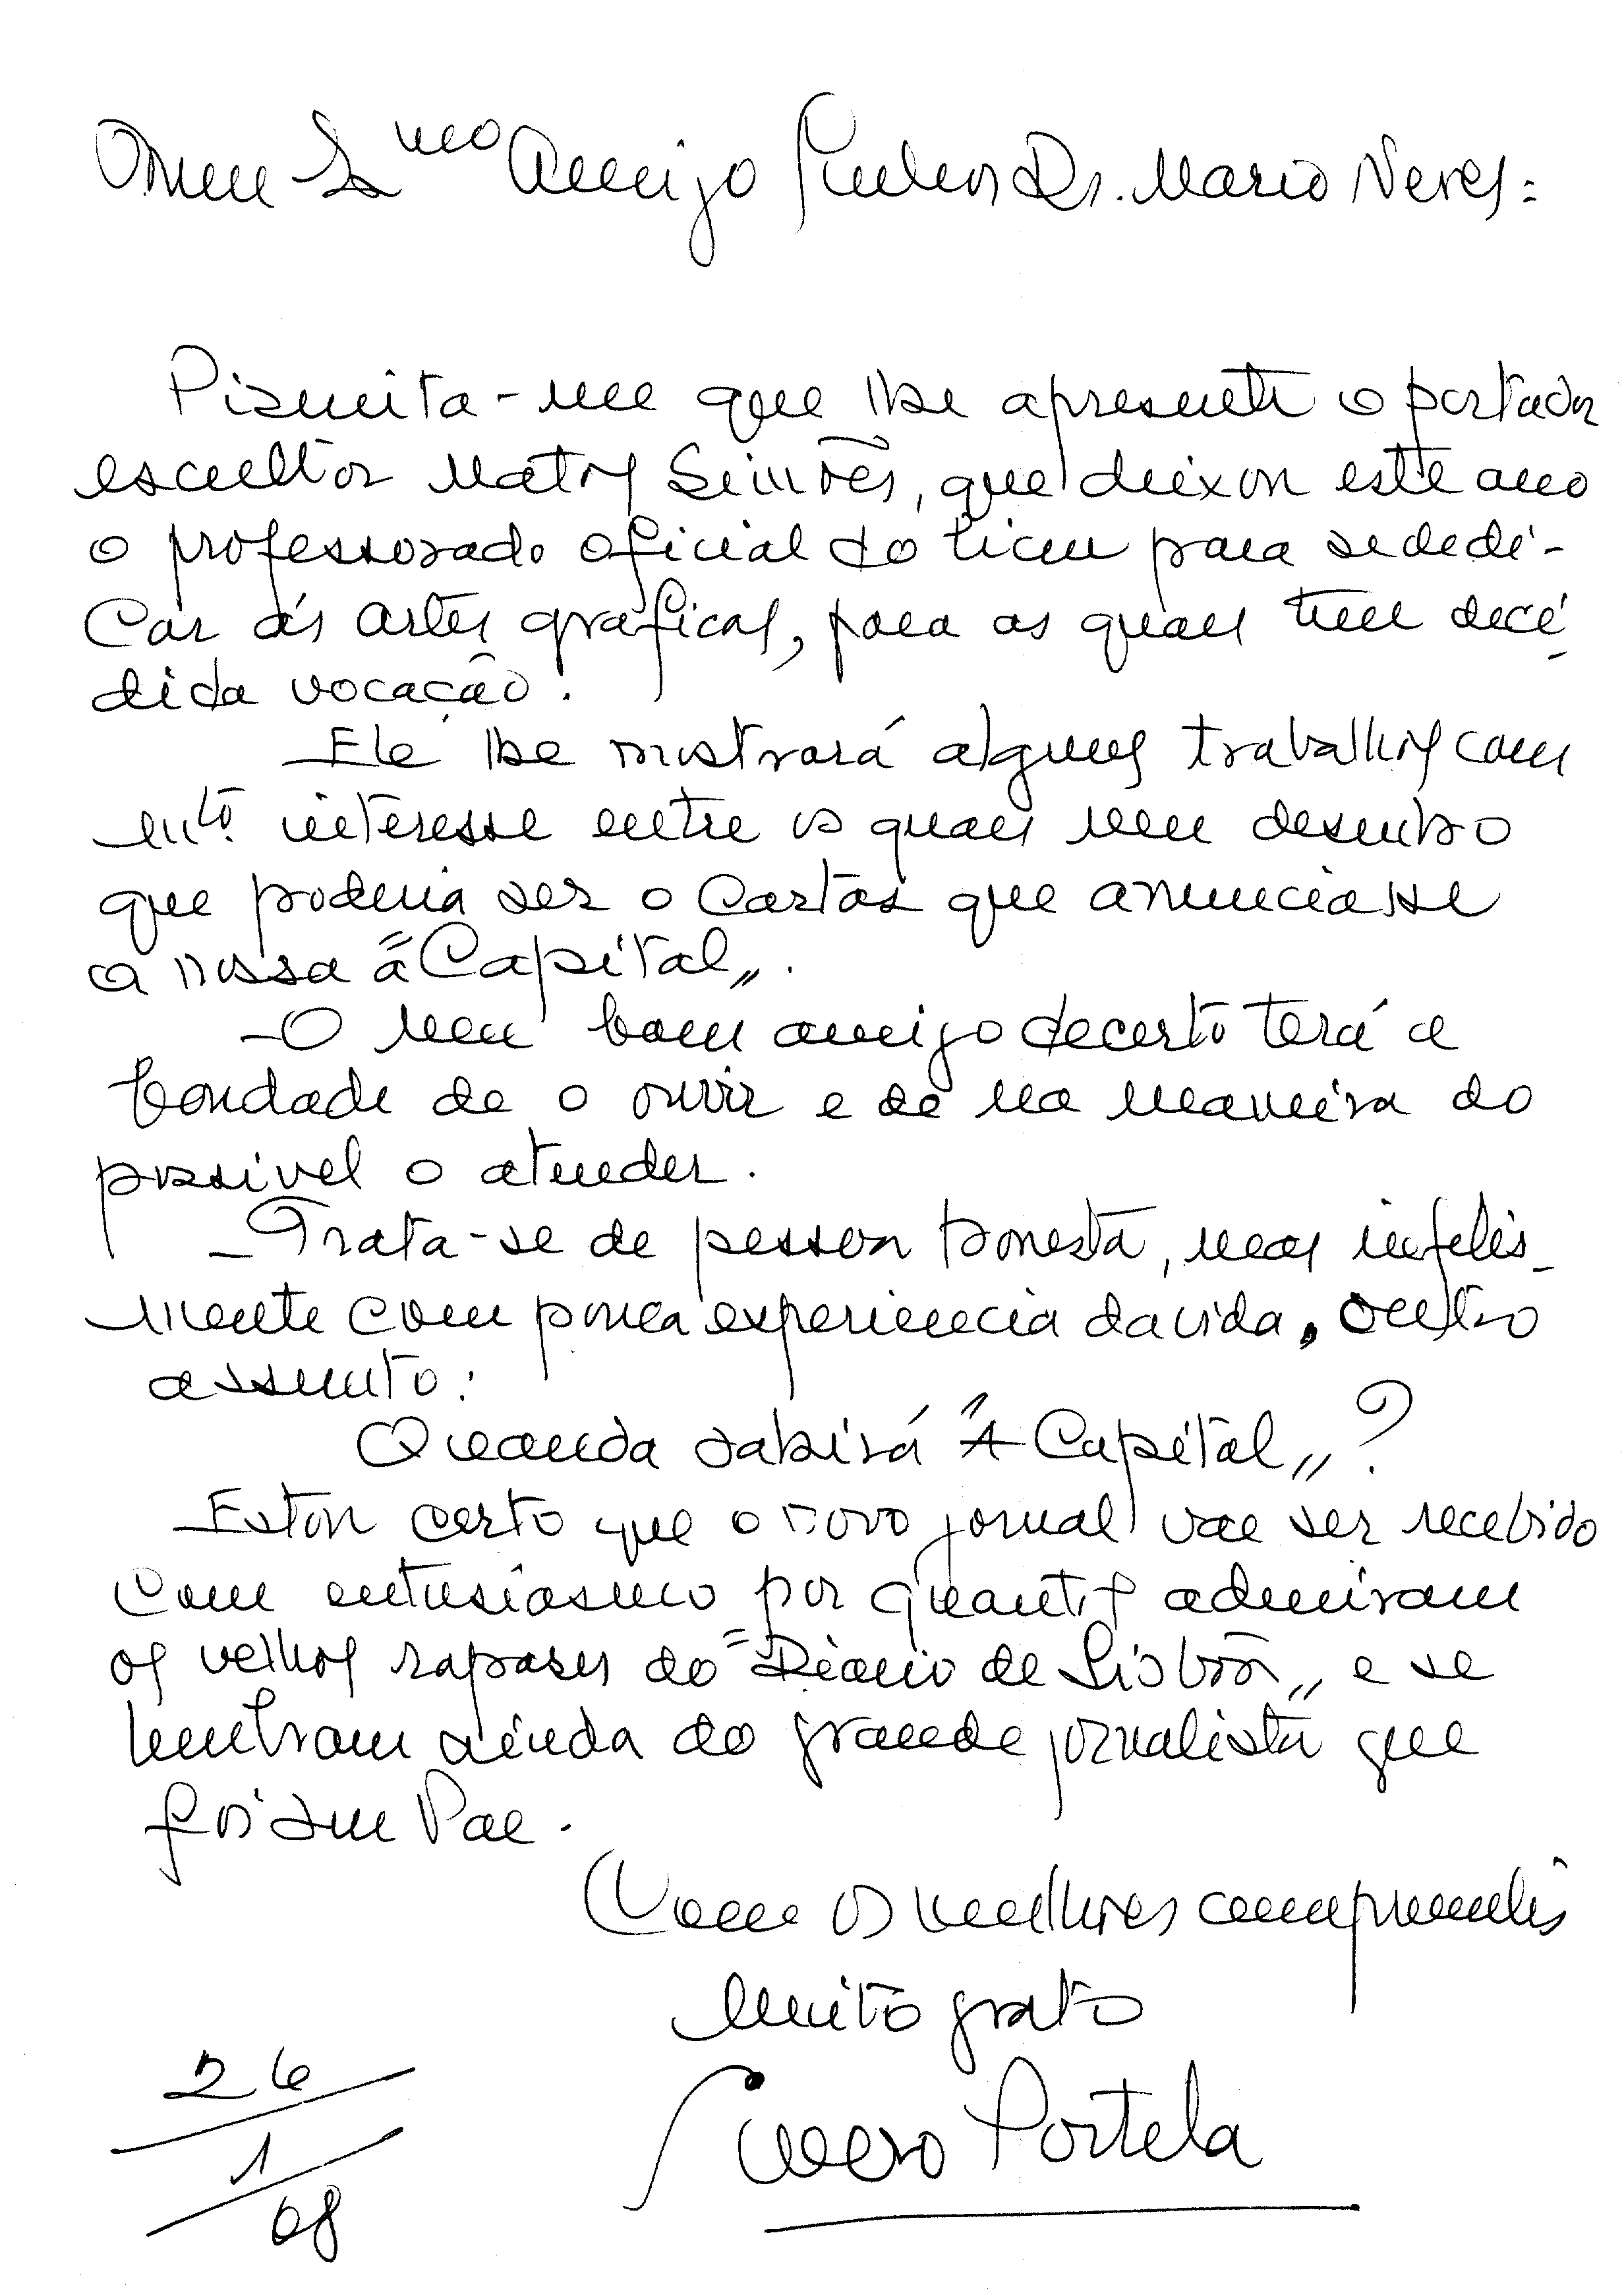 O meu Ex.mo Amigo Senhor Dr. Mario Neves:
Permita-me que lhe apresente o portador
escultor Matos Simões, que deixou este ano
o professorado oficial do liceu para se dedi-
car ás artes graficas, para as quaes tem deci-
dida vocação.
—Ele lhe mostrará alguns trabalhos com
mto. interesse entre os quaes um desenho
que poderia ser o cartaz que anunciasse
a nossa "a Capital".
—O meu bom amigo decerto terá a
bondade de o ouvir e de na maneira do
possivel o atender.
—Trata-se de pessoa honesta, mas infelis-
mente com pouca experiencia da vida. Outro
assunto:
Quando sahirá "A Capital"?
—Estou certo que o novo jornal vae ser recebido
com entusiasmo por quantos admiram
os velhos rapases do "Diario de Lisboa" e se
lembram ainda do grande jornalista que
foi seu Pae.
Com os melhores comprimentos
muito grato
Portela
26
1
68